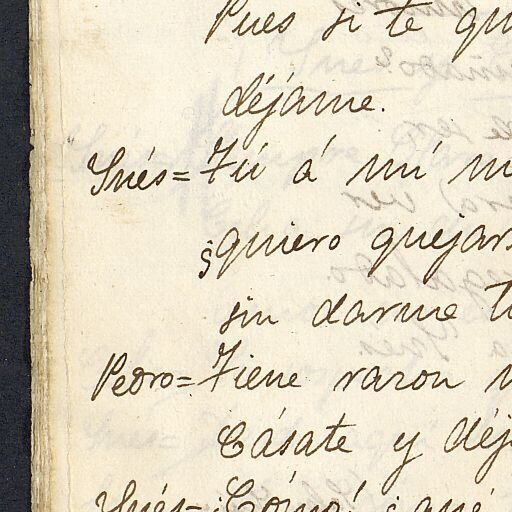 Pues si te qu
déjame.
Inés= Tú á mí m
quiero quejars
sin darme t
Pedro= Tiene razon
Cásate y déj
Inés= ¡Cómo! ¿qué